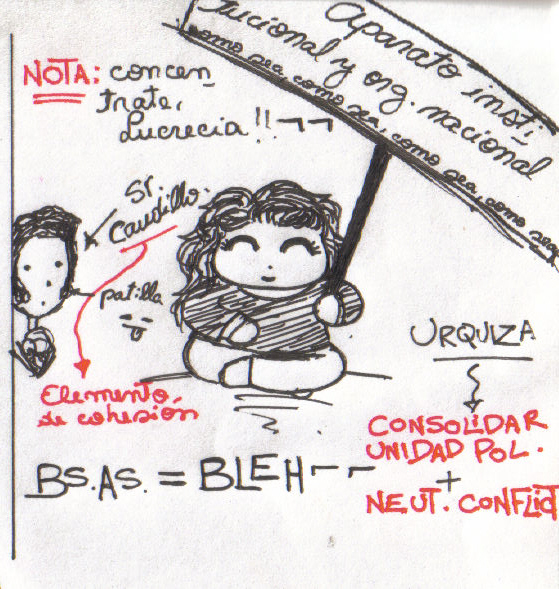 NOTA: concen-
trate,
Lucrecia!! ¬¬
Aparato insti-
tucional y org. nacional
como sea, como sea, como sea, como sea, como sea
Sr.
Caudillo.
patilla
Elemento
de cohesión
URQUIZA
CONSOLIDAR
UNIDAD POL.
+
NEUT. CONFLICT
BS.AS. = BLEH ¬¬